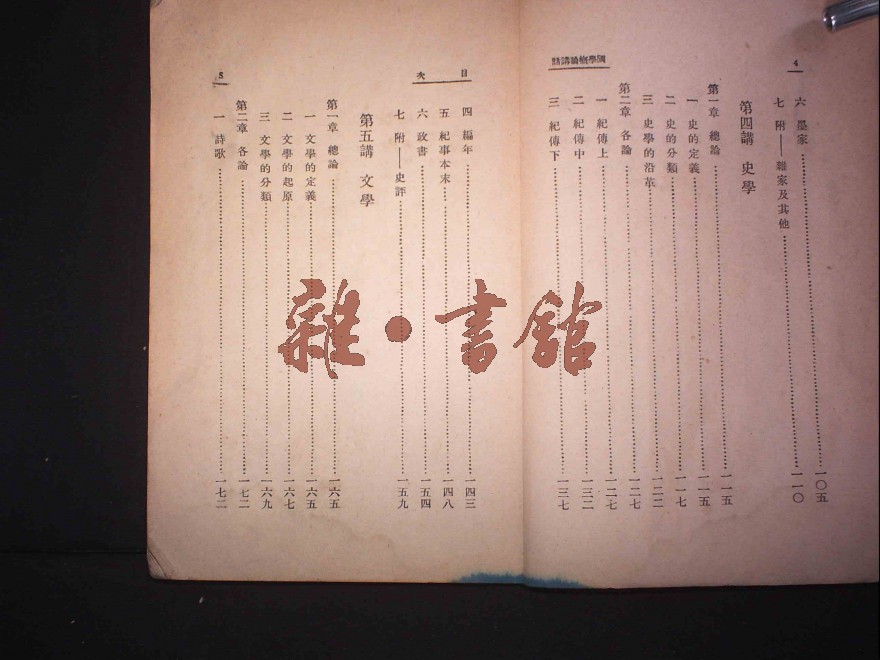 4
國學概論講話
六 墨家……一〇五
七 附——雜家及其他……一一〇
第四講 史學
第一章 總論……一一五
一 史的定義……一一五
二 史的分類……一一七
三 史學的沿革……一二二
第二章 各論……一二七
一 紀傳上……一二七
二 紀傳中……一三二
三 紀傳下……一三七
目次
5
四 編年……一四三
五 紀事本末……一四八
六 政書……一五四
七 附——史評……一五九
第五講 文學
第一章 總論……一六五
一 文學的定義……一六五
二 文學的起原……一六七
三 文學的分類……一六九
第二章 各論……一七二
一 詩歌……一七二
雜·書館